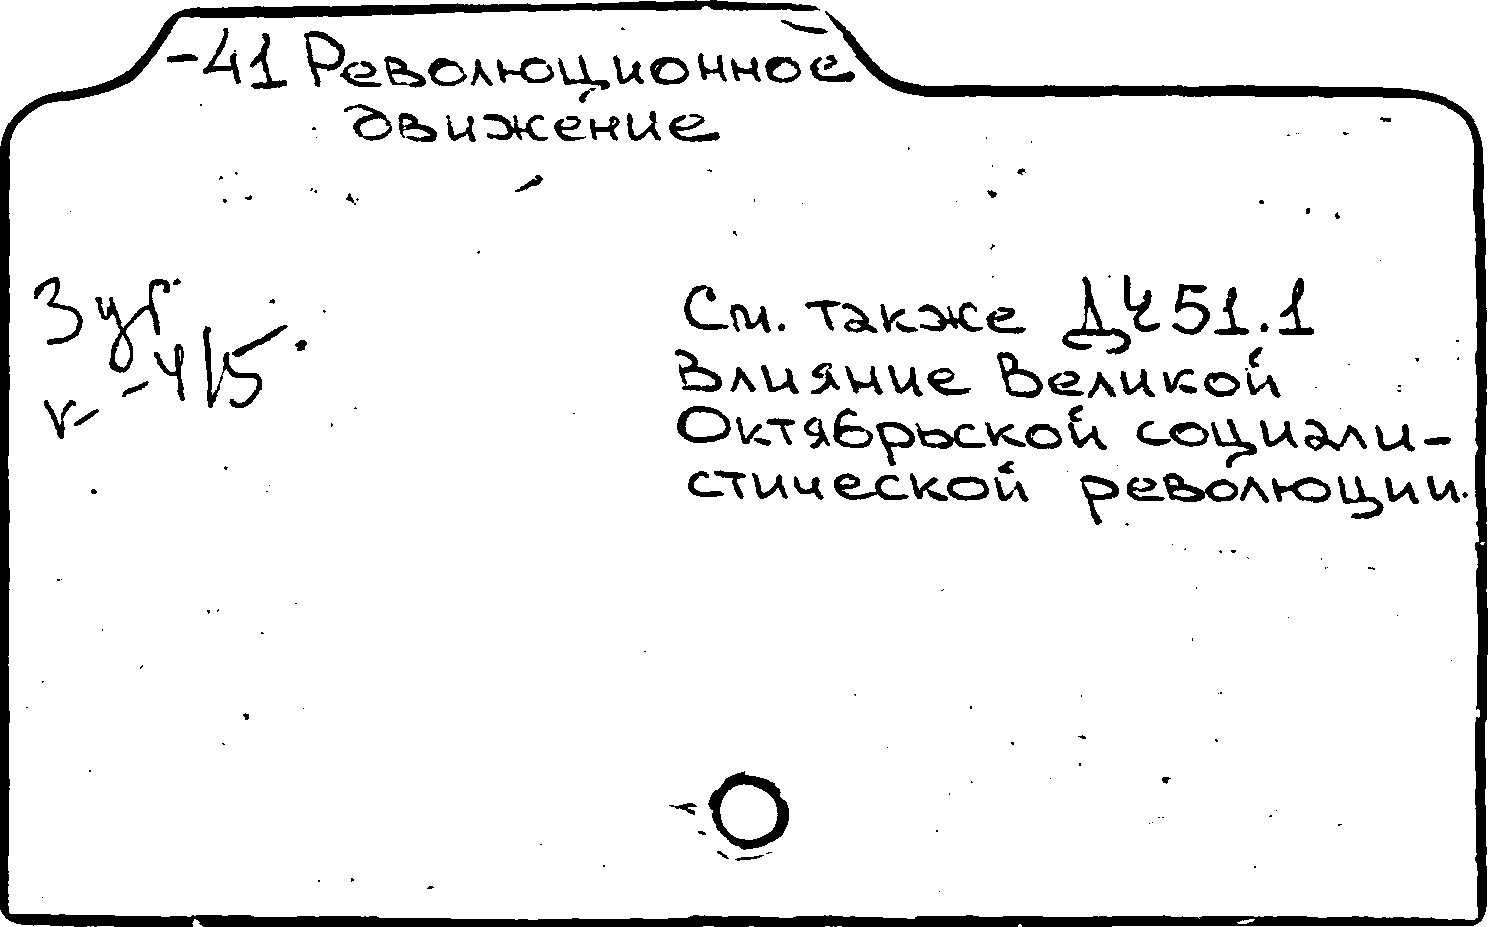 -41 Революционное
движение
См. также ДЧ51.1
Влияние Великой
Октябрьской социали-
стической революции.